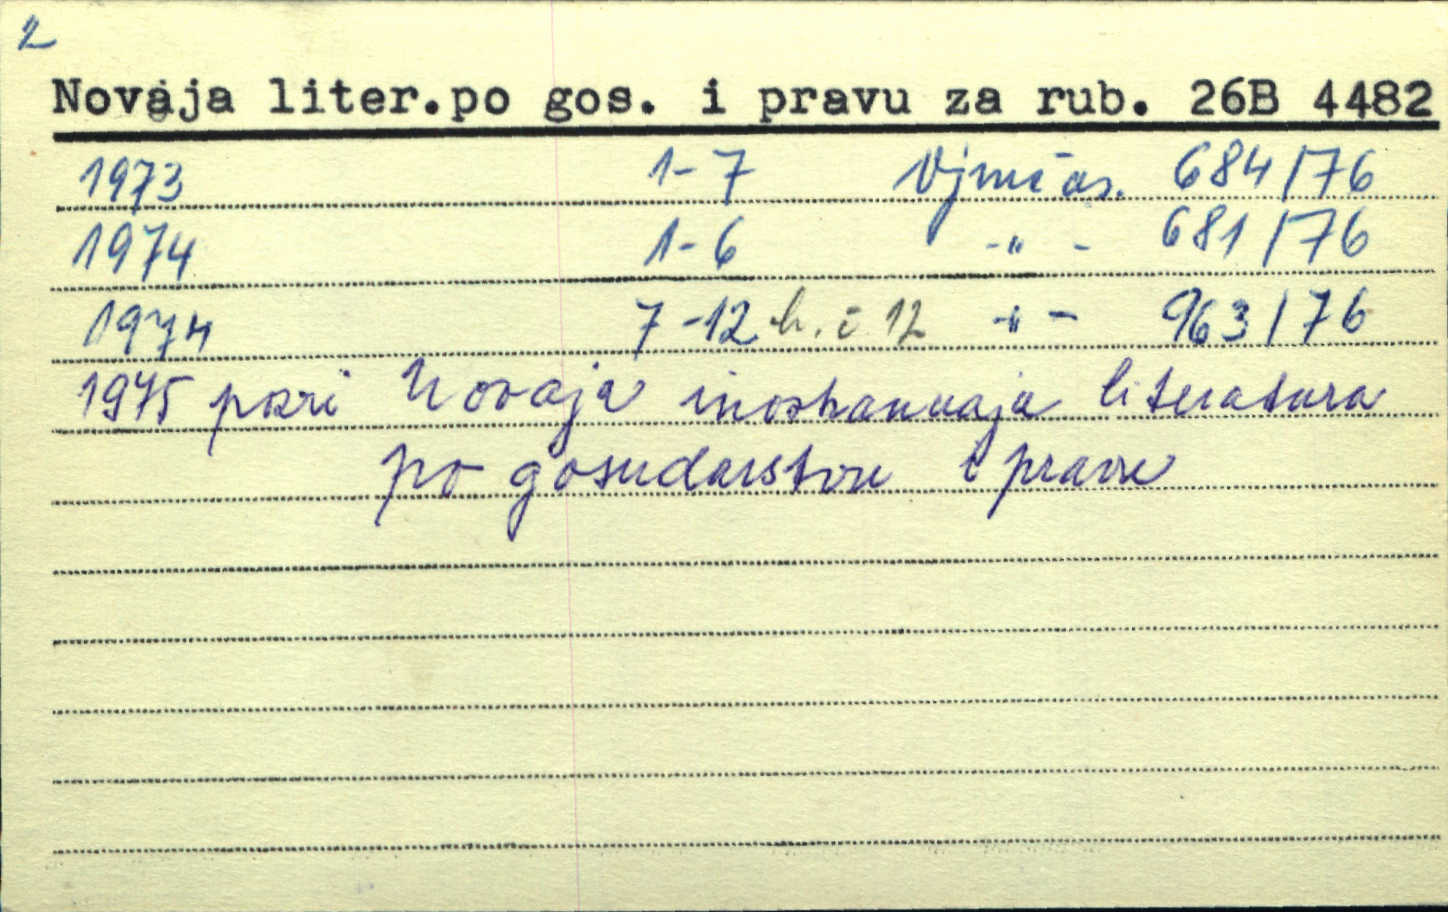 2
Novaja liter.po gos. i pravu za rub. 26B 4482
1973 1-7 Výmčas. 684/76
1974 1-6 -"- 681/76
1974 7-12 h. č. 12 -"- 963/76
1975 pozri Novaja inostrannaja literatura
po gosudarstvu i pravu